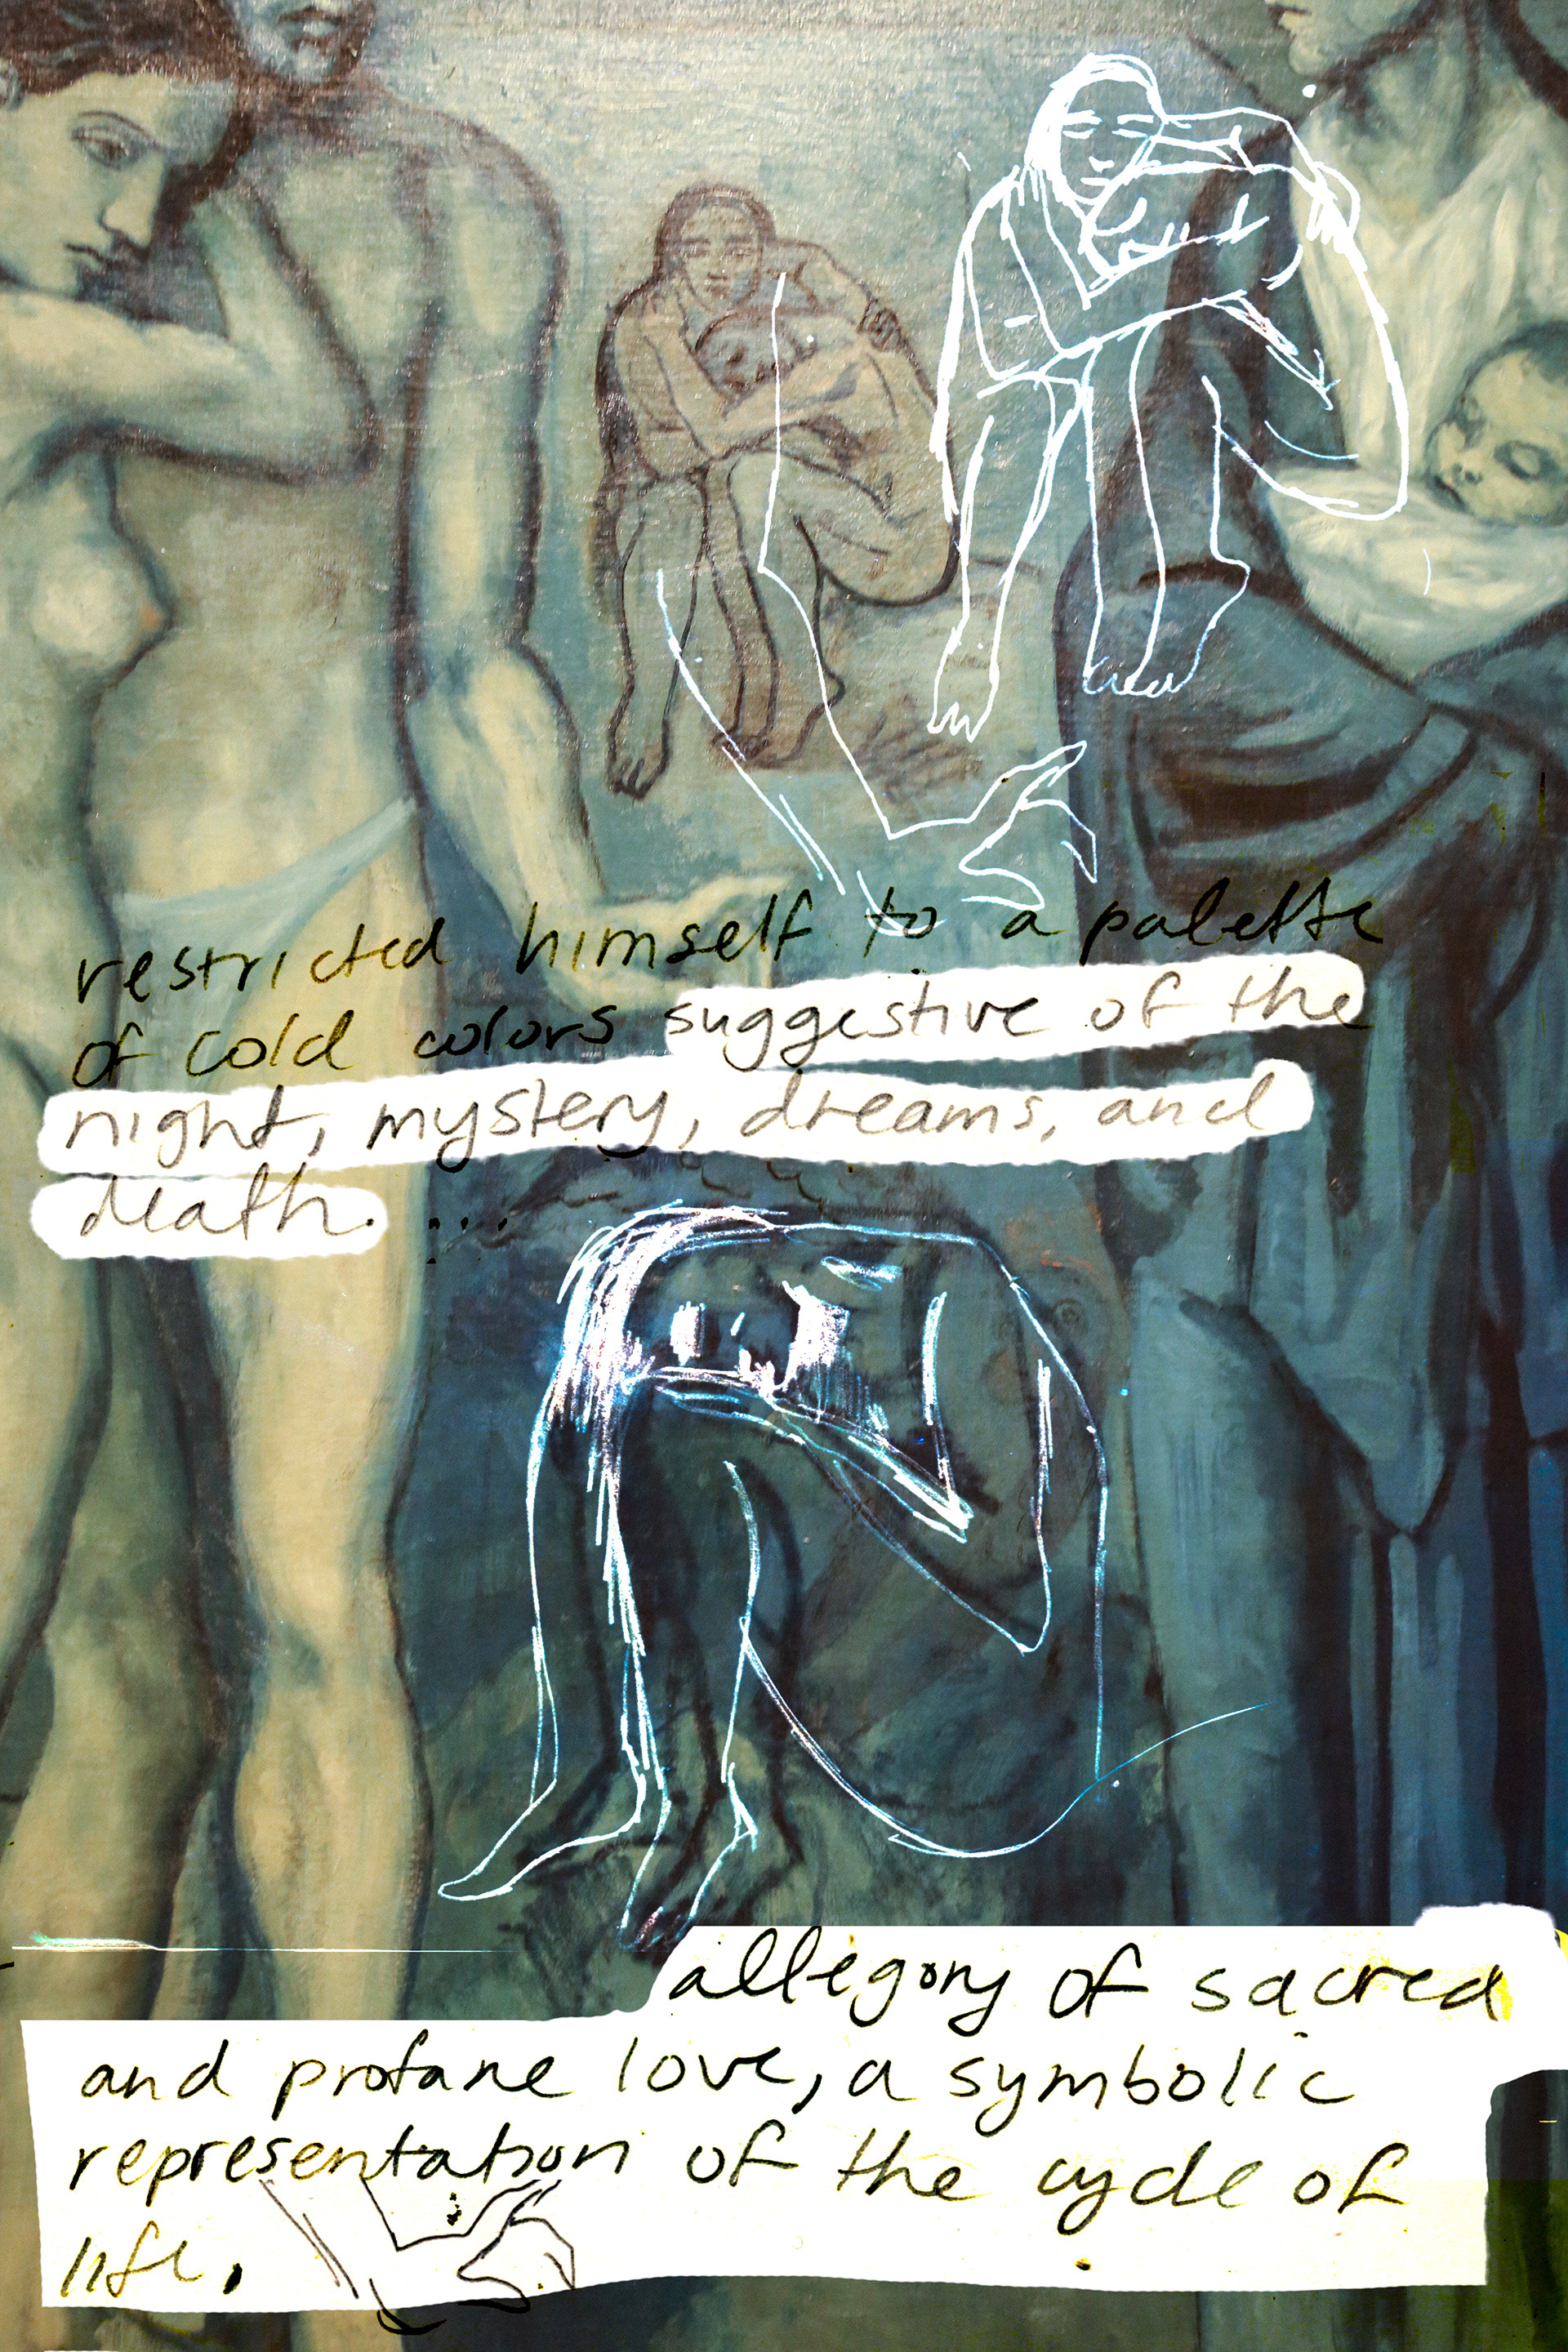 restricted himself to a palette
of cold colors suggestive of the
night, mystery, dreams, and
death. ...
allegory of sacred
and profane love, a symbolic
representation of the cycle of
life.